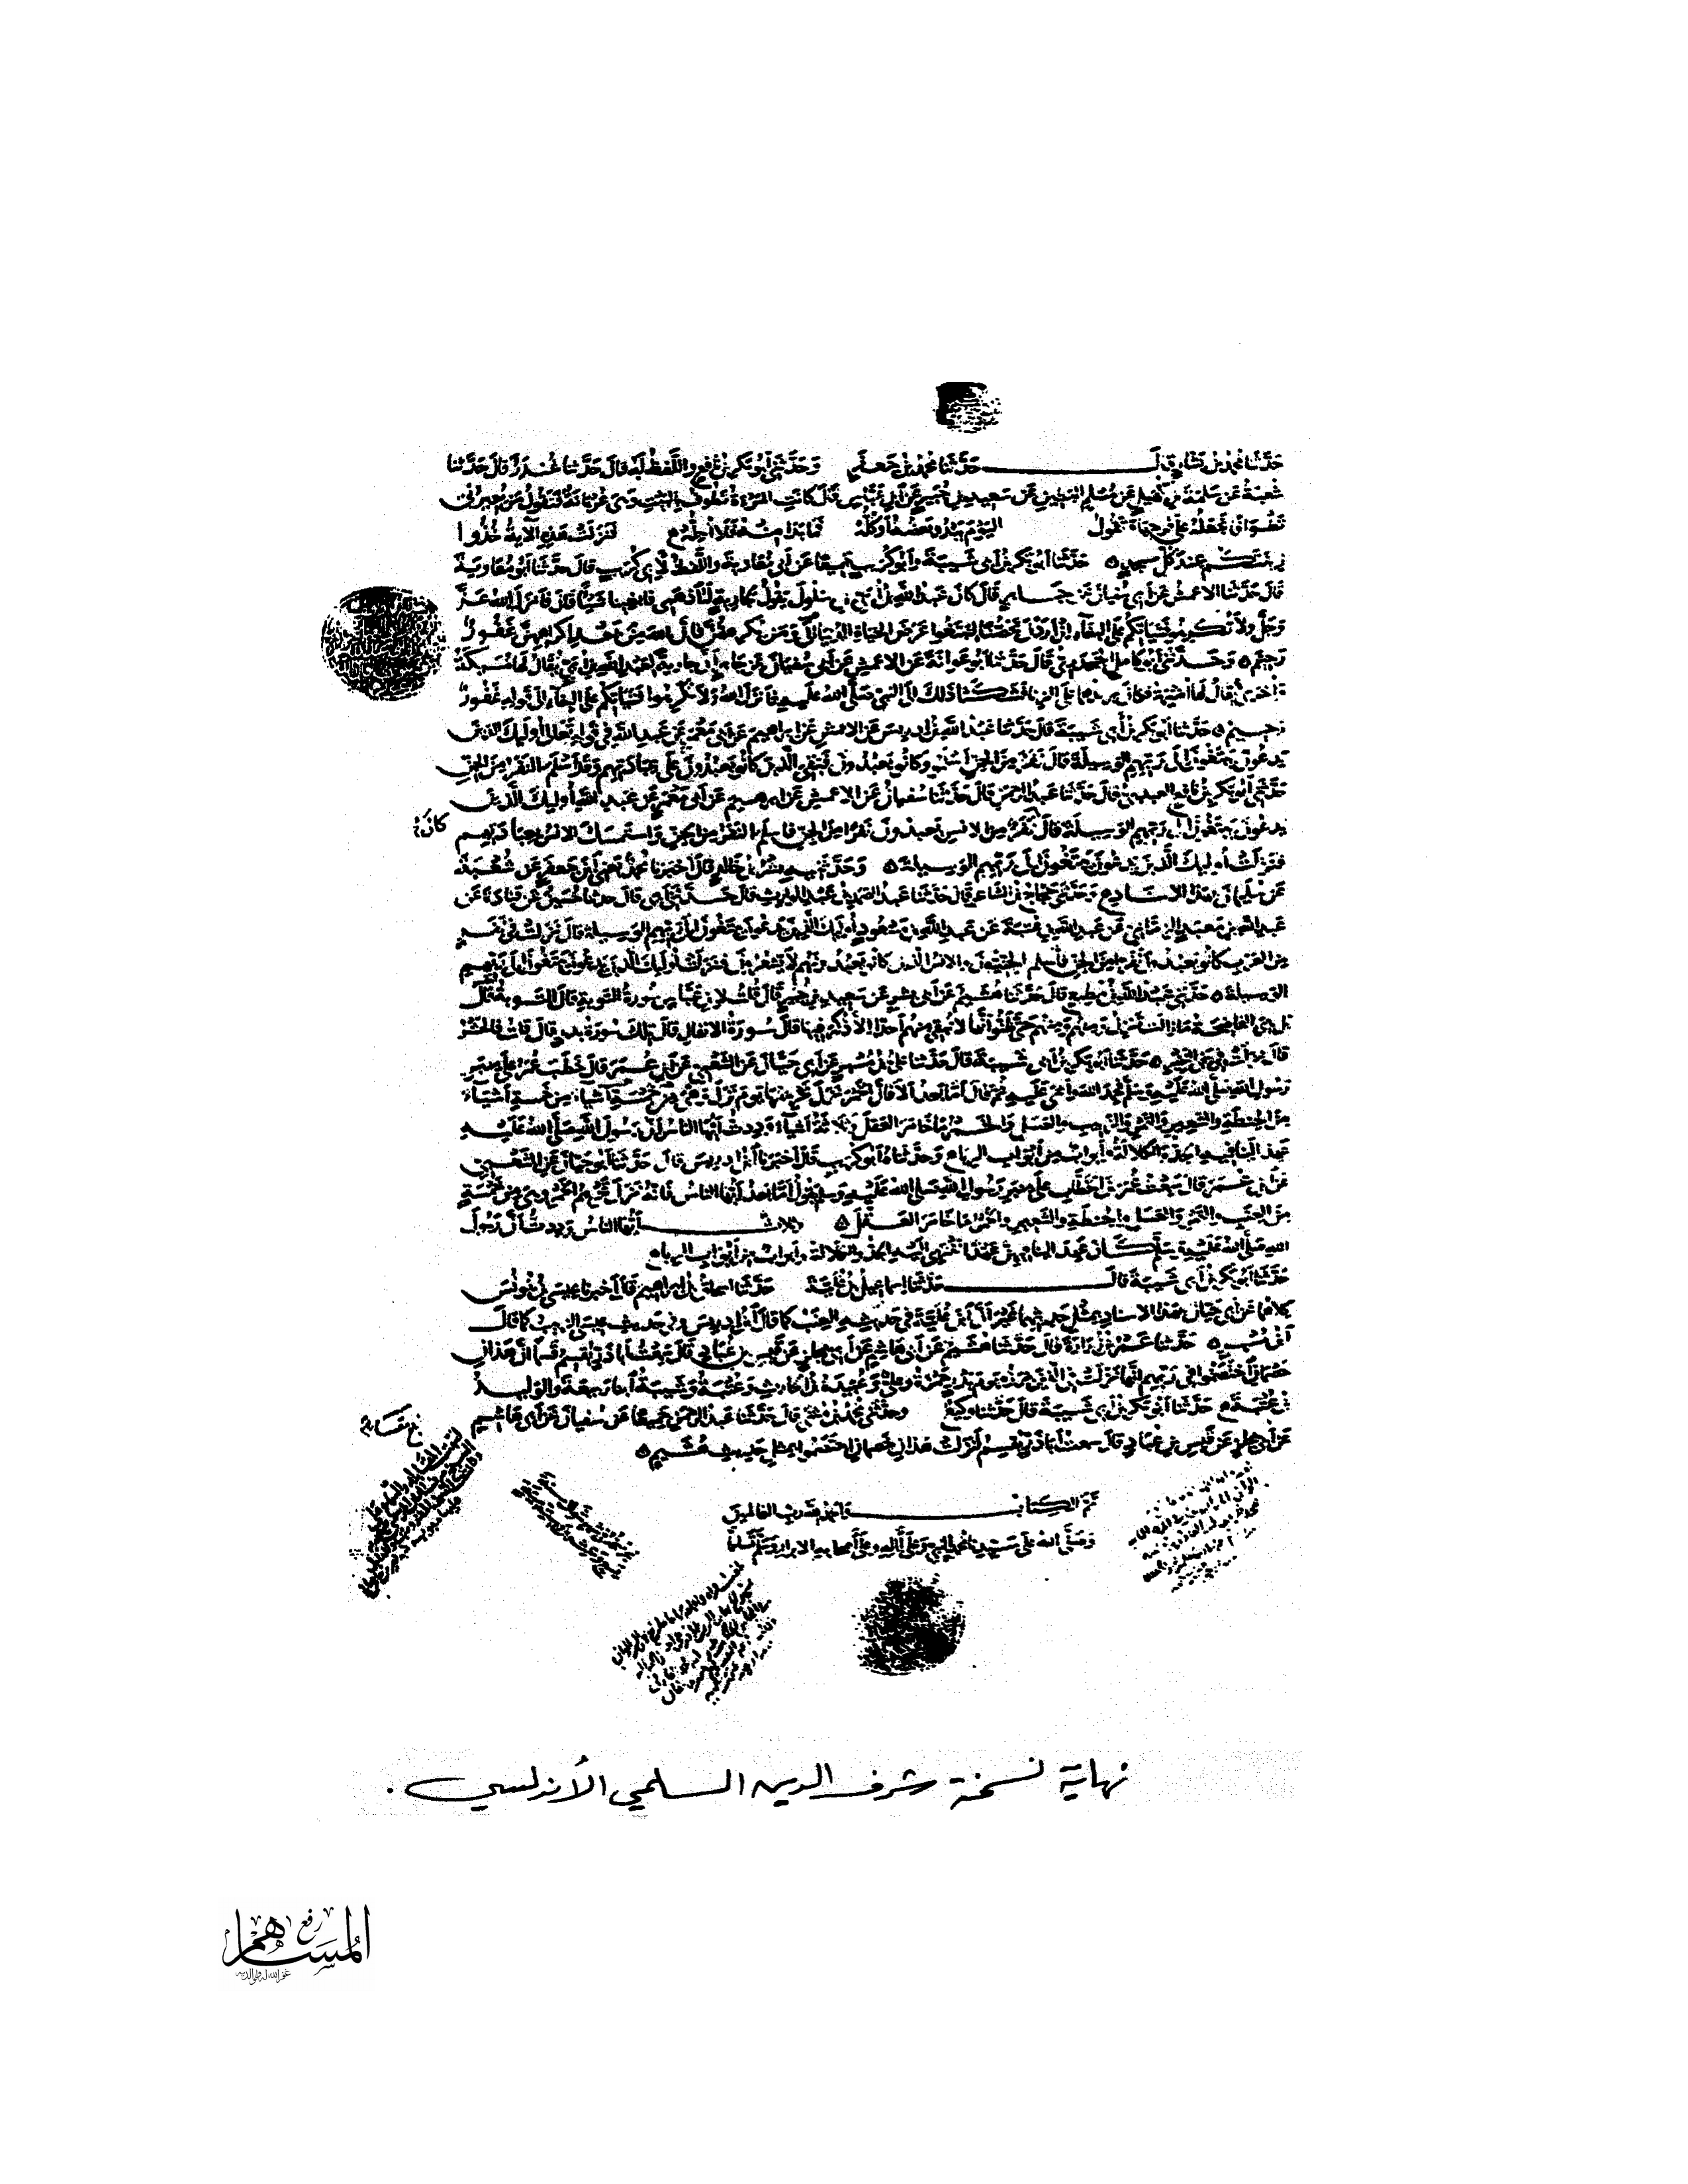 حدثنا محمد بن بشار قال حدثنا محمد بن جعفر ح وحدثني أبو بكر بن نافع واللفظ له قال حدثنا غندر قال حدثنا
شعبة عن سلمة بن كهيل عن مسلم البطين عن سعيد بن جبير عن ابن عباس قال كانت المرأة تطوف بالبيت وهي عريانة فتقول من يعيرني
تطوافا تجعله على فرجها وتقول اليوم يبدو بعضه أو كله فما بدا منه فلا أحله فنزلت هذه الآية خذوا
زينتكم عند كل مسجد حدثنا أبو بكر بن أبي شيبة وأبو كريب جميعا عن أبي معاوية واللفظ لأبي كريب قال حدثنا أبو معاوية
قال حدثنا الأعمش عن أبي سفيان عن جابر قال كان عبد الله بن أبي بن سلول يقول لجارية له اذهبي فابغينا شيئا قال فأنزل الله عز
وجل ولا تكرهوا فتياتكم على البغاء إن أردن تحصنا لتبتغوا عرض الحياة الدنيا ومن يكرههن فإن الله من بعد إكراههن غفور
رحيم وحدثني أبو كامل الجحدري قال حدثنا أبو عوانة عن الأعمش عن أبي سفيان عن جابر أن جارية لعبد الله بن أبي يقال لها مسيكة
وأخرى يقال لها أميمة فكان يريدهما على الزنا فشكتا ذلك إلى النبي صلى الله عليه فأنزل الله ولا تكرهوا فتياتكم على البغاء إلى قوله غفور
رحيم حدثنا أبو بكر بن أبي شيبة قال حدثنا عبد الله بن إدريس عن الأعمش عن إبراهيم عن أبي معمر عن عبد الله في قوله تعالى أوليك الذين
يدعون يبتغون إلى ربهم الوسيلة قال نفر من الجن أسلموا وكانوا يعبدون فبقي الذين كانوا يعبدون على عبادتهم وقد أسلم النفر من الجن
حدثني أبو بكر بن نافع العبدي قال حدثنا عبد الرحمن قال حدثنا سفيان عن الأعمش عن إبراهيم عن أبي معمر عن عبد الله أوليك الذين
يدعون يبتغون إلى ربهم الوسيلة قال نفر من الإنس يعبدون نفرا من الجن فأسلم النفر من الجن واستمسك الإنس بعبادتهم
كان
فنزلت أوليك الذين يدعون يبتغون إلى ربهم الوسيلة وحدثنيه بشر بن خالد قال أخبرنا محمد يعني ابن جعفر عن شعبة
عن سليمان بهذا الإسناد ح وحدثني حجاج بن الشاعر قال حدثنا عبد الصمد بن عبد الوارث قال حدثني أبي قال حدثنا حسين عن قتادة عن
عبد الله بن معبد الزماني عن عبد الله بن عتبة عن عبد الله بن مسعود أوليك الذين يدعون يبتغون إلى ربهم الوسيلة قال نزلت في نفر
من العرب كانوا يعبدون نفرا من الجن فأسلم الجنيون والإنس الذين كانوا يعبدونهم لا يشعرون فنزلت أوليك الذين يدعون يبتغون إلى ربهم
الوسيلة حدثني عبد الله بن مطيع قال حدثنا هشيم عن أبي بشر عن سعيد بن جبير قال قلت لابن عباس سورة التوبة قال التوبة قال
بل هي الفاضحة ما زالت تنزل ومنهم ومنهم حتى ظنوا أنها لا تبقي منهم أحدا إلا ذكر فيها قال سورة الأنفال قال تلك سورة بدر قال قلت فالحشر
قال نزلت في بني النضير حدثنا أبو بكر بن أبي شيبة قال حدثنا علي بن مسهر عن أبي حيان عن الشعبي عن ابن عمر قال خطب عمر على منبر
رسول الله صلى الله عليه وسلم فحمد الله وأثنى عليه ثم قال أما بعد ألا فإن الخمر نزل تحريمها يوم نزل وهي من خمسة أشياء
من الحنطة والشعير والتمر والزبيب والعسل والخمر ما خامر العقل وثلاثة أشياء وددت أيها الناس أن رسول الله صلى الله عليه
عهد إلينا فيها الجد والكلالة وأبواب من أبواب الربا ح وحدثناه أبو كريب قال أخبرنا ابن إدريس قال حدثنا أبو حيان عن الشعبي
عن ابن عمر قال سمعت عمر بن الخطاب على منبر رسول الله صلى الله عليه وسلم يقول أما بعد أيها الناس فإنه نزل تحريم الخمر وهي من خمسة
من العنب والتمر والعسل والحنطة والشعير والخمر ما خامر العقل وثلاث أيها الناس وددت أن رسول
الله صلى الله عليه وسلم كان عهد إلينا فيهن عهدا ننتهي إليه الجد والكلالة وأبواب من أبواب الربا
حدثنا أبو بكر بن أبي شيبة قال حدثنا إسماعيل بن علية حدثنا إسحاق بن إبراهيم قال أخبرنا عيسى بن يونس
كلاهما عن أبي حيان بهذا الإسناد بمثل حديثهما غير أن ابن علية في حديثه العنب كما قال ابن إدريس وفي حديث عيسى الزبيب كما قال
ابن مسهر حدثنا عمرو بن زرارة قال حدثنا هشيم عن أبي هاشم عن أبي مجلز عن قيس بن عباد قال سمعت أبا ذر يقسم قسما أن هذان
خصمان اختصموا في ربهم أنها نزلت في الذين برزوا يوم بدر حمزة وعلي وعبيدة بن الحارث وعتبة وشيبة ابنا ربيعة والوليد
بن عتبة ح حدثنا أبو بكر بن أبي شيبة قال حدثنا وكيع وحدثني محمد بن مثنى قال حدثنا عبد الرحمن جميعا عن سفيان عن أبي هاشم
عن أبي مجلز عن قيس بن عباد قال سمعت أبا ذر يقسم لنزلت هذان خصمان اختصموا بمثل حديث هشيم
تم الكتاب والحمد لله رب العالمين
وصلى الله على سيدنا محمد النبي وعلى آله وعلى أصحابه الأبرار وسلم تسليما
نهاية نسخة شرف الدين السلمي الأندلسي .
رفع
المساهم
غفر الله له ولوالديه